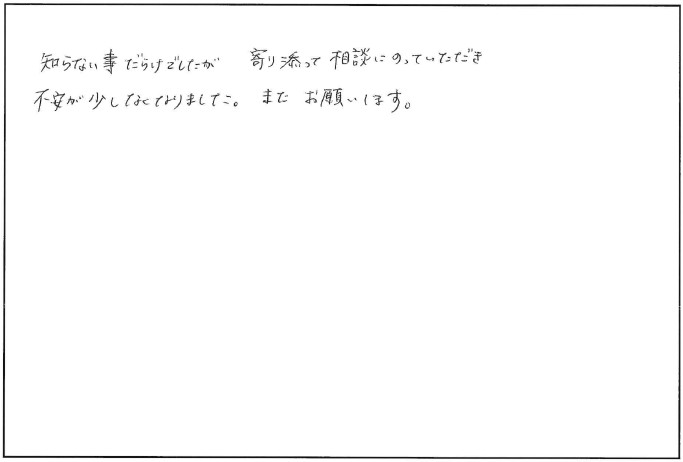 知らない事だらけでしたが 寄り添って相談にのっていただき
不安が少しなくなりました。 また お願いします。